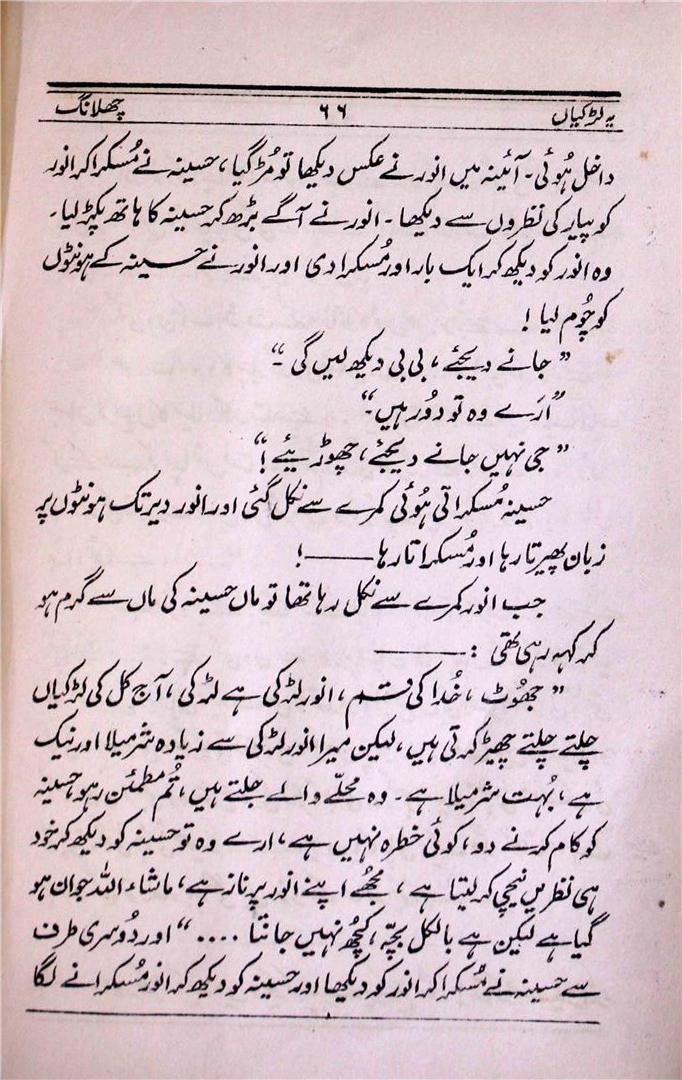 یہ لڑکیاں ۶۶ چھلانگ
داخل ہُوئی۔ آئینہ میں انور نے عکس دیکھا تو مُڑ گیا، حسینہ نے مُسکرا کر انور
کو پیار کی نظروں سے دیکھا۔ انور نے آگے بڑھ کر حسینہ کا ہاتھ پکڑ لیا۔
وہ انور کو دیکھ کر ایک بار اور مُسکرا دی اور انور نے حسینہ کے ہونٹوں
کو چُوم لیا !
”جانے دیجئے، بی بی دیکھ لیں گی۔“
”اَرے وہ تو دُور ہیں۔“
”جی نہیں جانے دیجئے، چھوڑیئے !“
حسینہ مُسکراتی ہُوئی کمرے سے نکل گئی اور انور دیر تک ہونٹوں پر
زبان پھیرتا رہا اور مُسکراتا رہا ——— !
جب انور کمرے سے نکل رہا تھا تو ماں حسینہ کی ماں سے گرم ہو
کر کہہ رہی تھی : ———
”جھُوٹ، خُدا کی قسم، انور لڑکی ہے لڑکی، آج کل کی لڑکیاں
چلتے چلتے چھیڑ کرتی ہیں، لیکن میرا انور لڑکی سے زیادہ شرمیلا اور نیک
ہے، بُہت شرمیلا ہے۔ وہ محلّے والے جلتے ہیں، تُم مطمئن رہو حسینہ
کو کام کرنے دو، کوئی خطرہ نہیں ہے، ارے وہ تو حسینہ کو دیکھ کر خود
ہی نظریں نیچی کر لیتا ہے، مجُھے اپنے انور پر ناز ہے، ماشاء اللہ جوان ہو
گیا ہے لیکن ہے بالکل بچّہ، کچُھ نہیں جانتا ....“ اور دُوسری طرف
سے حسینہ نے مُسکرا کر انور کو دیکھا اور حسینہ کو دیکھ کر انور مُسکرانے لگا